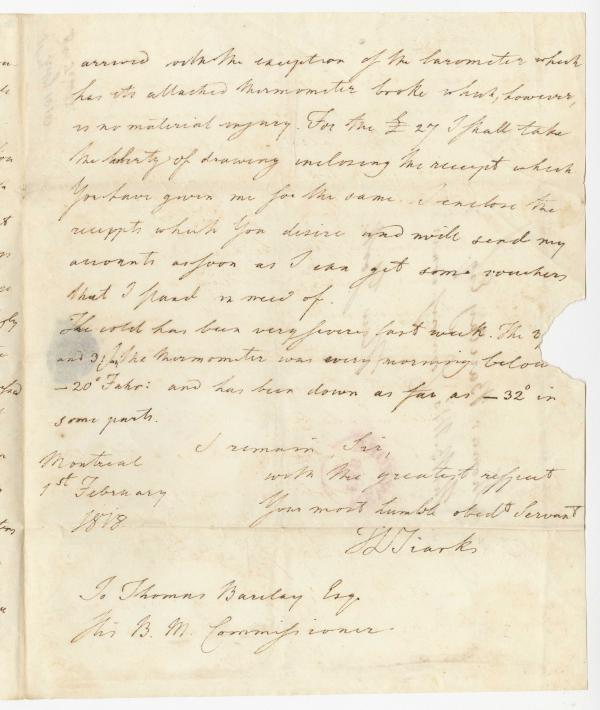 arrived with the exception of the barometer which
has its attached thermometer broke which, however,
is no material injury. For the £ 27 I shall take
the liberty of drawing inclosing the receipt which
You have given me for the same. I enclose the
receipts which You desire and will send my
accounts as soon as I can get some vouchers
that I stand in need of.
The cold has been very severe last week. The
and 31st the thermometer was every morning below
– 20° Fahr: and has been down as far as – 32° in
some parts.
I remain, Sir,
with the greatest respect
Your most humble obedt Servant
Montreal
1st February
1818
JL Tiarks
To Thomas Barclay Esq.
His B. M. Commissioner.